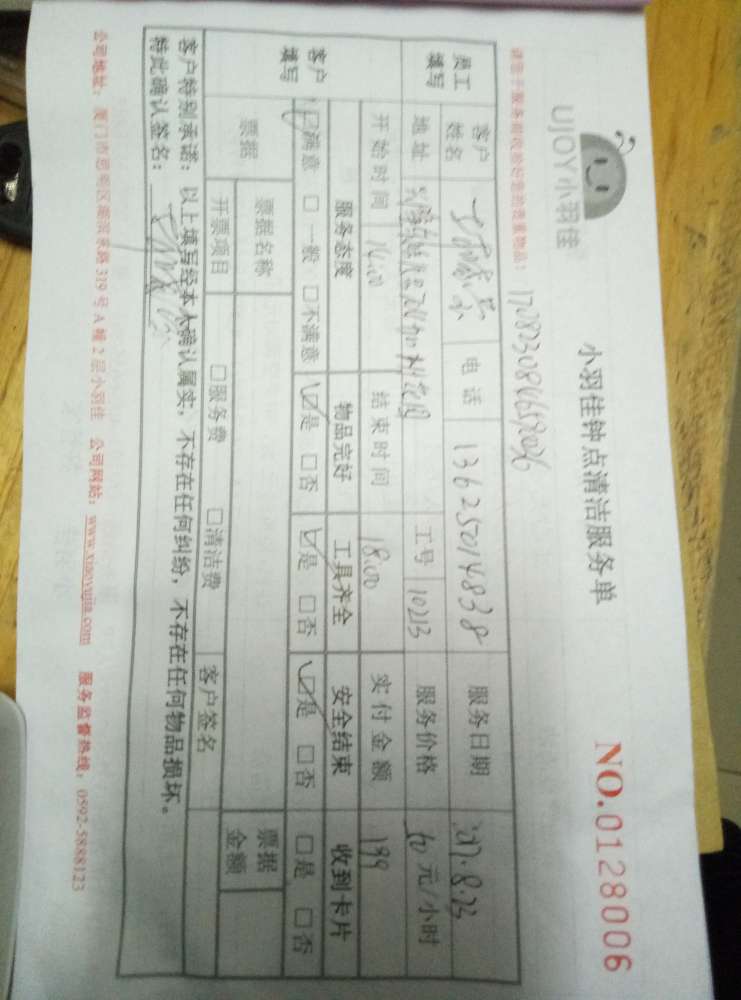 UJOY小羽佳
小羽佳钟点清洁服务单
NO.0128006
请您于服务前收拾好您的贵重物品！
170823084659036
员工填写
客户姓名
电话 13625014838 服务日期 2017.8.23
地址
工号 10213 服务价格 50元/小时
开始时间 14:00 结束时间 18:00 实付金额 199
客户填写
服务态度 物品完好 工具齐全 安全结束 收到卡片
☑满意 □一般 □不满意 ☑是 □否 ☑是 □否 ☑是 □否 □是 □否
票据
票据名称 票据金额
开票项目 □服务费 □清洁费 客户签名
客户特别承诺：以上填写经本人确认属实，不存在任何纠纷，不存在任何物品损坏。
特此确认签名：
公司地址：厦门市思明区湖滨东路319号A幢2层小羽佳 公司网站：www.xiaoyujia.com 服务监督热线：0592-5888123